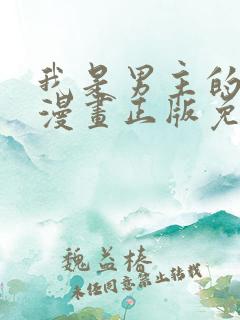 我是男主的
漫畫正版免
魏益椿
未经同意禁止转载